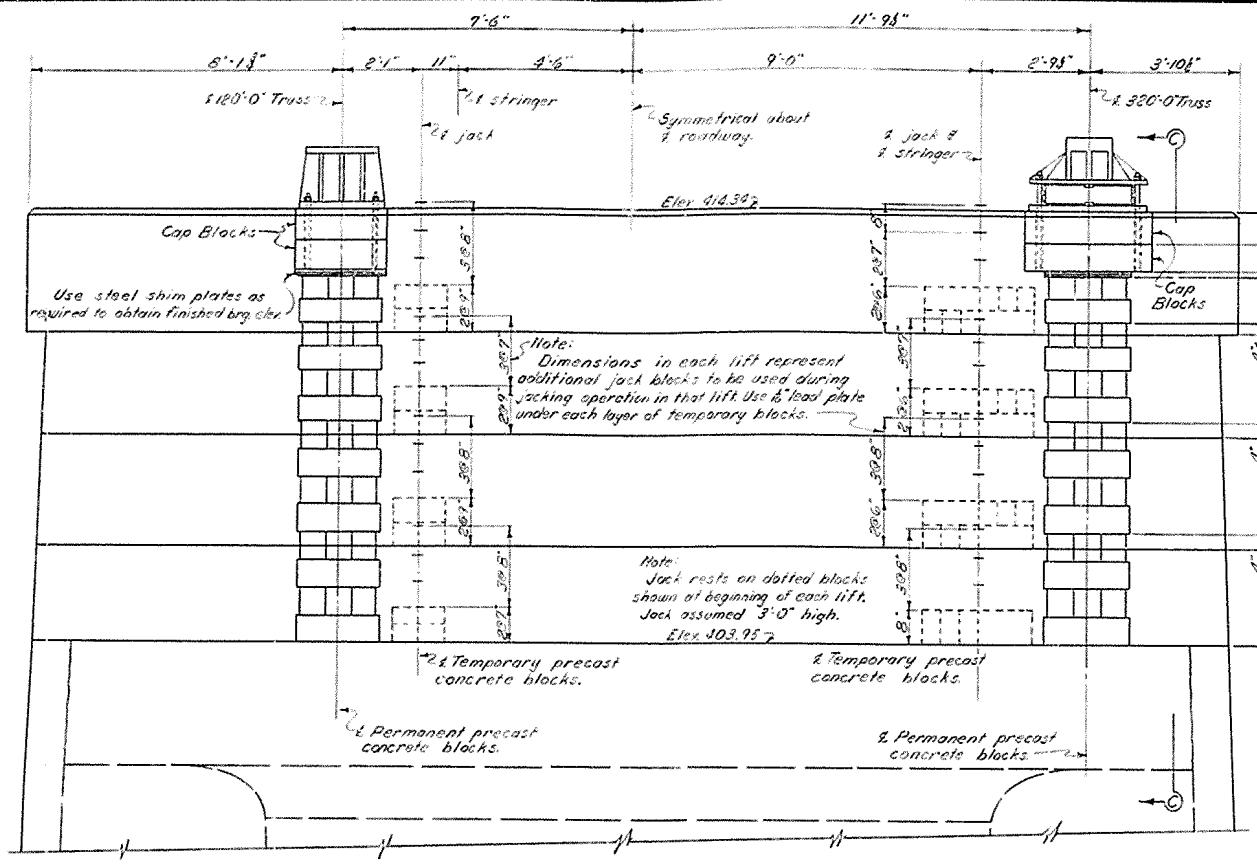 7'-6"
11'-9½"
8'-1¾"
2'-1"
11"
4'-6"
9'-0"
2'-9½"
3'-10½"
℄ 120'-0" Truss
℄ stringer
℄ jack
Symmetrical about
℄ roadway.
℄ jack &
℄ stringer
℄ 320'-0" Truss
C
Elev. 414.34
Cap Blocks
Cap
Blocks
Use steel shim plates as
required to obtain finished brg. elev.
3@8"
2@9"
8"
2@7"
2@6"
Note:
Dimensions in each lift represent
additional jack blocks to be used during
jacking operation in that lift. Use lead plate
under each layer of temporary blocks.
3@7"
2@9"
3@7"
2@6"
3@8"
2@9"
3@8"
2@6"
Note:
Jack rests on dotted blocks
shown at beginning of each lift.
Jack assumed 3'-0" high.
Elev. 403.95
3@8"
2@7"
3@8"
8"
℄ Temporary precast
concrete blocks.
℄ Temporary precast
concrete blocks.
℄ Permanent precast
concrete blocks.
℄ Permanent precast
concrete blocks.
C